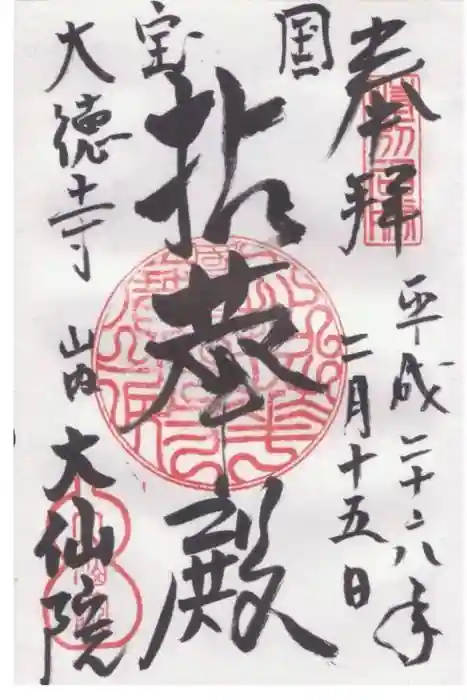 奉拝
平成二十六年
二月十五日
国宝
拈華殿
大徳寺 山内 大仙院